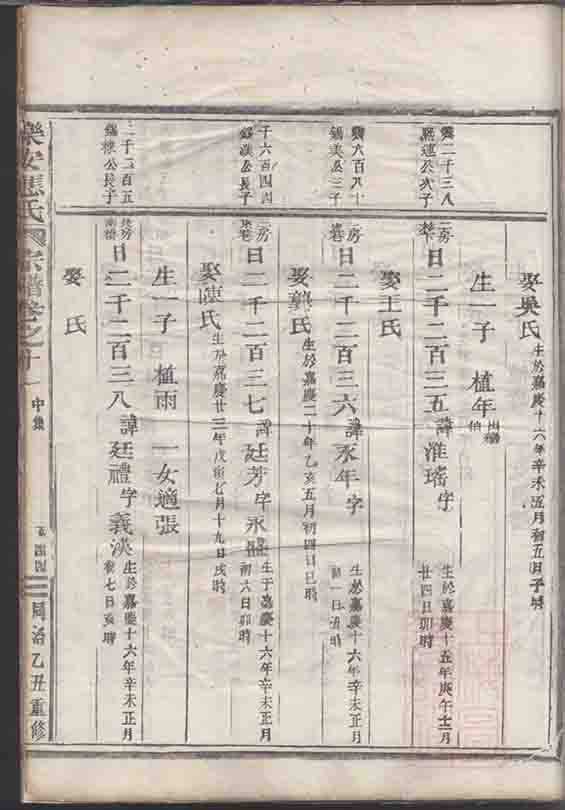 娶吳氏 生於嘉慶十六年辛未五月初五日子時
生一子 植年
二千三八
公次子
房 日二千二百三五 諱淮瑤字 生於嘉慶十五年庚午十二月廿四日卯時
娶王氏
六百八十
公三子
房 日二千二百三六 諱永年字 生於嘉慶十六年辛未正月初一日丑時
娶龔氏 生於嘉慶二十年乙亥五月初四日巳時
千六百四四
公長子
房 日二千二百三七 諱廷芳字永盛 生于嘉慶十六年辛未正月初六日卯時
娶陳氏 生於嘉慶廿三年戊寅七月十九日戌時
生一子 植雨 一女適張
二千二百五
公長子
房 日二千二百三八 諱廷禮字義決 生於嘉慶十六年辛未正月初七日亥時
娶 氏
樂安 氏 宗譜卷之十一 中集 同治乙丑重修